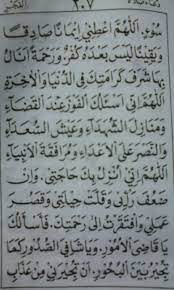 ٣٠٧
سُوْءٍ. اَللّٰهُمَّ اَعْطِنِيْ اِيْمَانًا صَادِقًا
وَيَقِيْنًا لَيْسَ بَعْدَهُ كُفْرٌ. وَرَحْمَةً اَنَالُ
بِهَا شَرَفَ كَرَامَتِكَ فِى الدُّنْيَا وَالْاٰخِرَةِ
اَللّٰهُمَّ اِنِّى اَسْئَلُكَ الْفَوْزَ عِنْدَ الْقَضَاءِ
وَمَنَازِلَ الشُّهَدَاءِ وَعَيْشَ السُّعَدَاءِ
وَالنَّصْرَ عَلَى الْاَعْدَاءِ وَمُرَافَقَةَ الْاَنْبِيَاءِ
اَللّٰهُمَّ اِنِّى اُنْزِلُ بِكَ حَاجَتِىْ. وَاِنْ
ضَعُفَ رَأْيِىْ وَقَلَّتْ حِيْلَتِىْ وَقَصُرَ
عَمَلِىْ وَافْتَقَرْتُ اِلَى رَحْمَتِكَ. فَاَسْأَلُكَ
يَا قَاضِىَ الْاُمُوْرِ. وَيَا شَافِىَ الصُّدُوْرِ كَمَا
تُجِيْرُ بَيْنَ الْبُحُوْرِ. اَنْ تُجِيْرَنِيْ مِنْ عَذَابِ